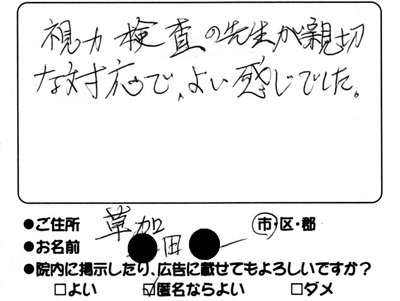 視力検査の先生が親切
な対応で、よい感じでした。
●ご住所 草加 市・区・郡
●お名前 ●田●
●院内に掲示したり、広告に載せてもよろしいですか？
□よい ☑匿名ならよい □ダメ